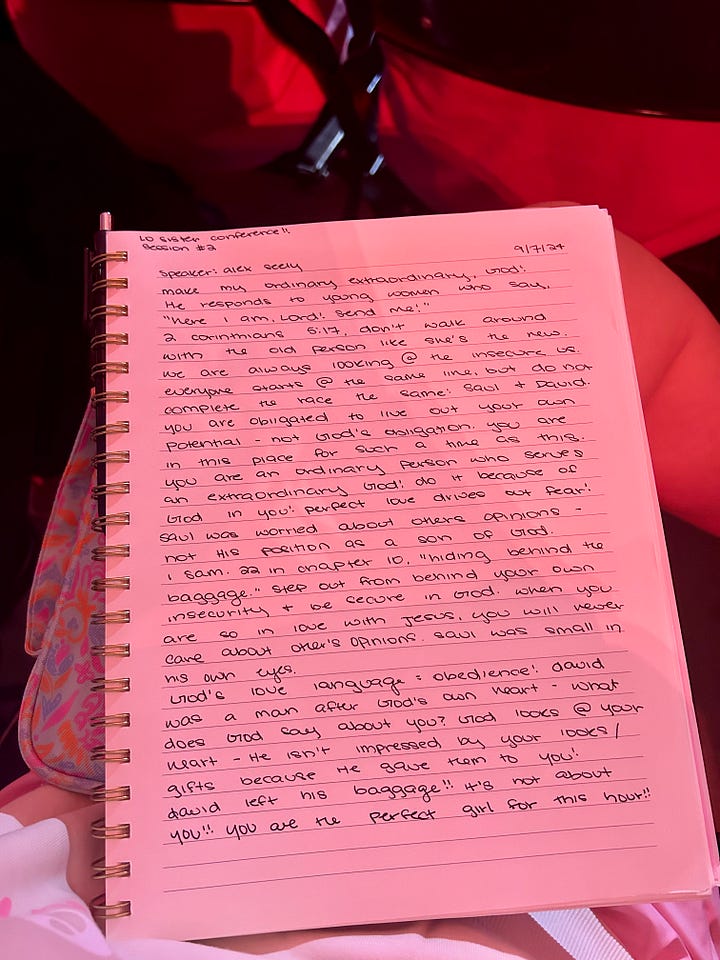 LO sister conference!!
Session #2
9/7/24
Speaker: alex seely
make my ordinary extraordinary, God!
He responds to young women who say,
"Here I am, Lord! Send me!"
2 corinthians 5:17, don't walk around
with the old person like she's the new.
we are always looking @ the insecure us.
everyone starts @ the same line, but do not
complete the race the same: saul + David.
you are obligated to live out your own
potential - not God's obligation. you are
in this place for such a time as this.
you are an ordinary person who serves
an extraordinary God! do it because of
God in you! perfect love drives out fear!
saul was worried about others opinions -
not His position as a son of God.
1 sam. 22 in chapter 10, "hiding behind the
baggage." step out from behind your own
insecurity + be secure in God. when you
are so in love with Jesus, you will never
care about other's opinions. saul was small in
his own eyes.
God's love language = obedience! david
was a man after God's own heart - what
does God say about you? God looks @ your
heart - He isn't impressed by your looks/
gifts because He gave them to you!
david left his baggage!! it's not about
you!! you are the perfect girl for this hour!!